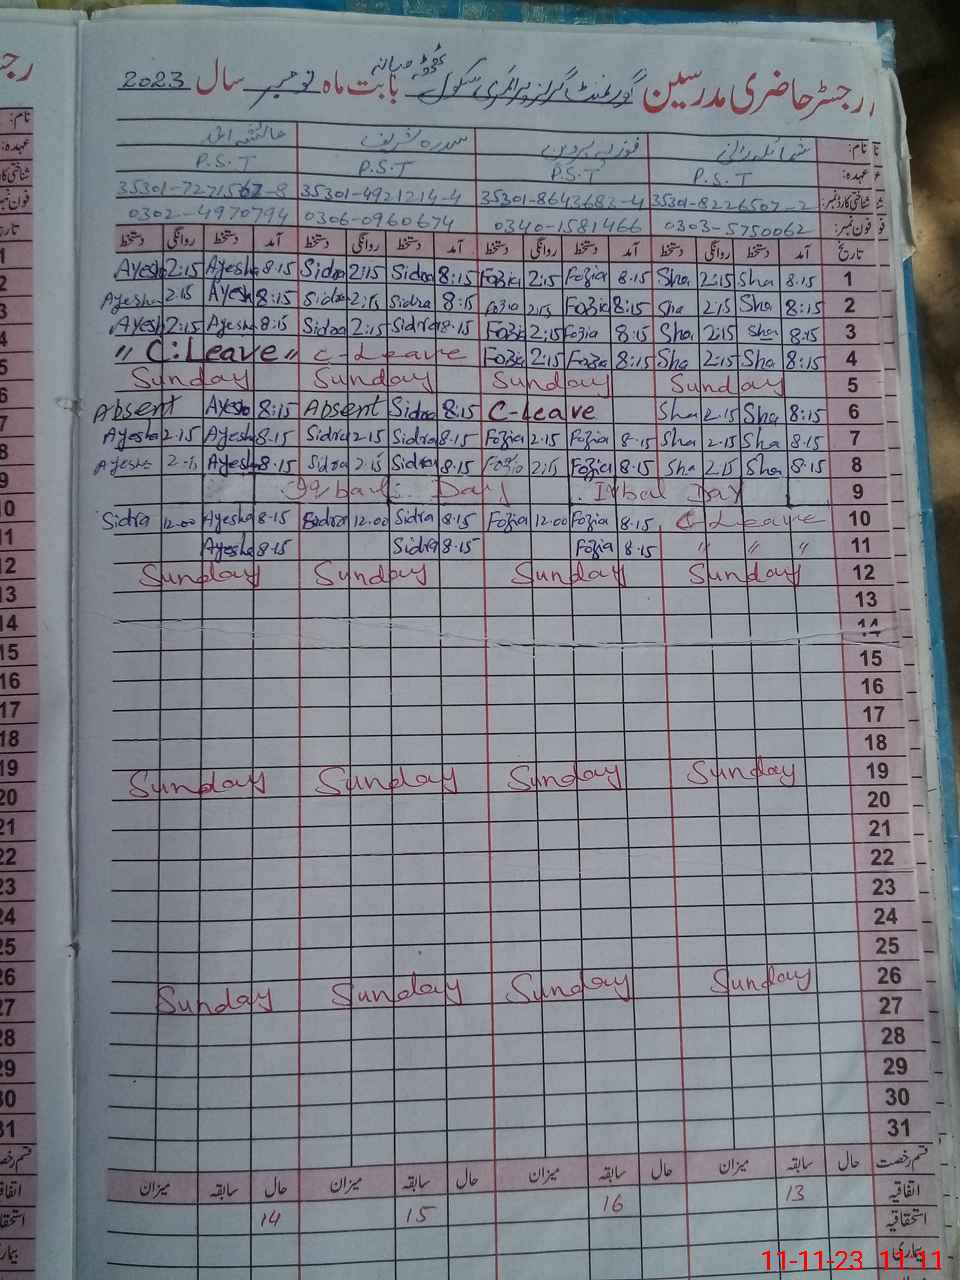 رجسٹر حاضری مدرسین گورنمنٹ گرلز پرائمری سکول بابت ماہ نومبر سال 2023
نام: شمائلہ رانی فوزیہ پروین سدرہ شریف عائشہ احمد
عہدہ: P.S.T P.S.T P.S.T P.S.T
شناختی کارڈ نمبر: 35301-8226507-2 35301-8643683-4 35301-4921214-4 35301-7271567-8
فون نمبر: 0303-5750062 0340-1581466 0306-0960674 0302-4970794
تاریخ آمد دستخط روانگی دستخط آمد دستخط روانگی دستخط آمد دستخط روانگی دستخط آمد دستخط روانگی دستخط
Ayesha 2:15 Ayesha 8:15 Sidra 2:15 Sidra 8:15 Fozia 2:15 Fozia 8:15 Sha 2:15 Sha 8:15 1
Ayesha 2:15 Ayesh 8:15 Sidra 2:15 Sidra 8:15 Fozia 2:15 Fozia 8:15 Sha 2:15 Sha 8:15 2
Ayesh 2:15 Ayesha 8:15 Sidra 2:15 Sidra 8:15 Fozia 2:15 Fozia 8:15 Sha 2:15 Sha 8:15 3
" C:Leave " C-Leave Fozia 2:15 Fozia 8:15 Sha 2:15 Sha 8:15 4
Sunday Sunday Sunday Sunday 5
Absent Ayesha 8:15 Absent Sidra 8:15 C-Leave Sha 2:15 Sha 8:15 6
Ayesha 2:15 Ayesha 8:15 Sidra 2:15 Sidra 8:15 Fozia 2:15 Fozia 8:15 Sha 2:15 Sha 8:15 7
Ayesha 2:15 Ayesha 8:15 Sidra 2:15 Sidra 8:15 Fozia 2:15 Fozia 8:15 Sha 2:15 Sha 8:15 8
Iqbal Day Iqbal Day 9
Sidra 12:00 Ayesha 8:15 Sidra 12:00 Sidra 8:15 Fozia 12:00 Fozia 8:15 C-Leave 10
Ayesha 8:15 Sidra 8:15 Fozia 8:15 " " " 11
Sunday Sunday Sunday Sunday 12
13
14
15
16
17
18
Sunday Sunday Sunday Sunday 19
20
21
22
23
24
25
Sunday Sunday Sunday Sunday 26
27
28
29
30
31
قسم رخصت حال سابقہ میزان حال سابقہ میزان حال سابقہ میزان حال سابقہ میزان
اتفاقیہ 13 16 15 14
استحقاقیہ
بیماری
11-11-23 11:11